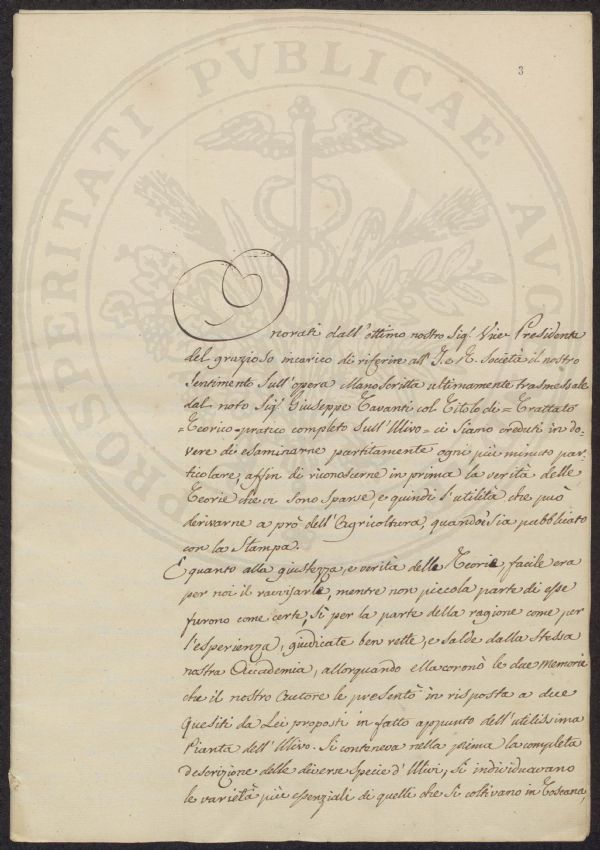 PROSPERITATI PVBLICAE AVG
3
Onorati dall'ottimo nostro Sig.r Vice Presidente
del grazioso incarico di riferire all'I. e R. Società il nostro
sentimento sull'opera Manoscritta ultimamente trasmessale
dal noto Sig.r Giuseppe Tavanti col Titolo di = Trattato
Teorico-pratico completo sull'Ulivo = ci siano creduti in do-
vere di esaminarne partitamente ogni più minuto par-
ticolare; affin di riconoscerne in prima la verità delle
Teorie che vi sono sparse, e quindi l'utilità che può
derivarne a prò dell'Agricoltura, quando sia pubblicato
con la Stampa.
E quanto alla giustezza, e verità delle Teorie facile era
per noi il ravvisarle, mentre non piccola parte di esse
furono come certe, sì per la parte della ragione come per
l'esperienza, giudicate ben rette, e salde dalla stessa
nostra Accademia, allorquando ella coronò le due memorie
che il nostro Autore le presentò in risposta a due
Quesiti da Lei proposti in fatto appunto dell'utilissima
Pianta dell'Ulivo. Si conteneva nella prima la completa
descrizione delle diverse Specie d'Ulivi, si individuavano
le varietà più essenziali di quelli che si coltivano in Toscana,